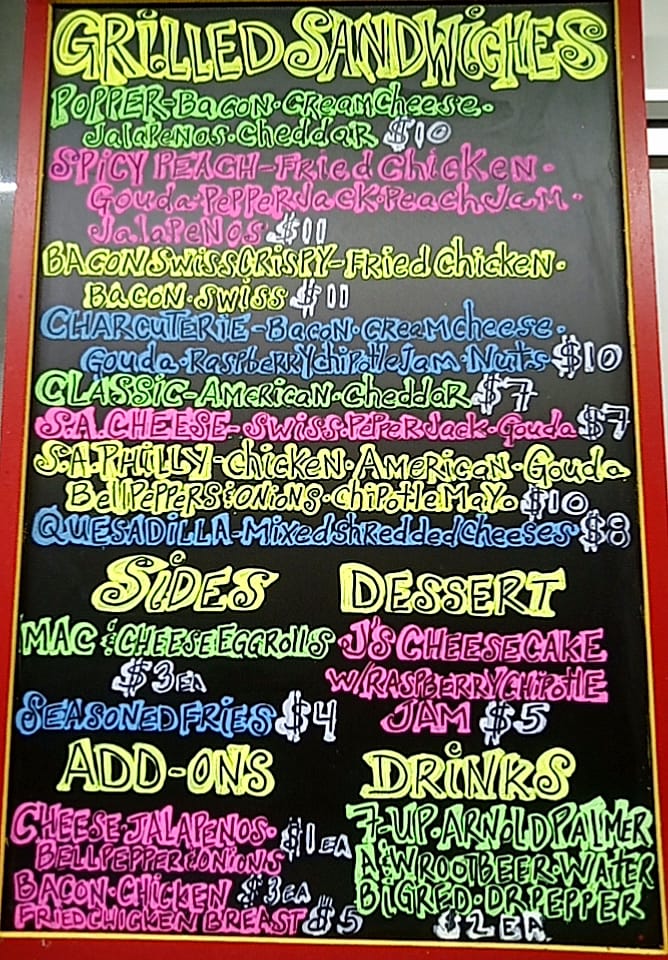 GRILLED SANDWICHES
POPPER-Bacon·CreamCheese·
Jalapenos·Cheddar $10
SPICY PEACH-Fried Chicken·
Gouda·PepperJack·PeachJam·
Jalapenos $11
BACONSWISSCRISPY-Fried Chicken·
Bacon·Swiss $11
CHARCUTERIE-Bacon·CreamCheese·
Gouda·RaspberryChipotleJam·Nuts $10
CLASSIC-American·Cheddar $7
S.A.CHEESE-Swiss·PepperJack·Gouda $7
S.A.PHILLY-Chicken·American·Gouda
BellPeppers&Onions·ChipotleMayo $10
QUESADILLA-MixedShreddedCheeses $8
SIDES
MAC &CHEESE EGGROLLS
$3EA
SEASONED FRIES $4
DESSERT
J'S CHEESECAKE
W/RASPBERRYCHIPOTLE
JAM $5
ADD-ONS
CHEESE·JALAPENOS·
BELLPEPPER&ONIONS $1EA
BACON·CHICKEN $3EA
FRIED CHICKEN BREAST $5
DRINKS
7-UP·ARNOLD PALMER
A&W ROOTBEER·WATER
BIGRED·DR PEPPER
$2 EA